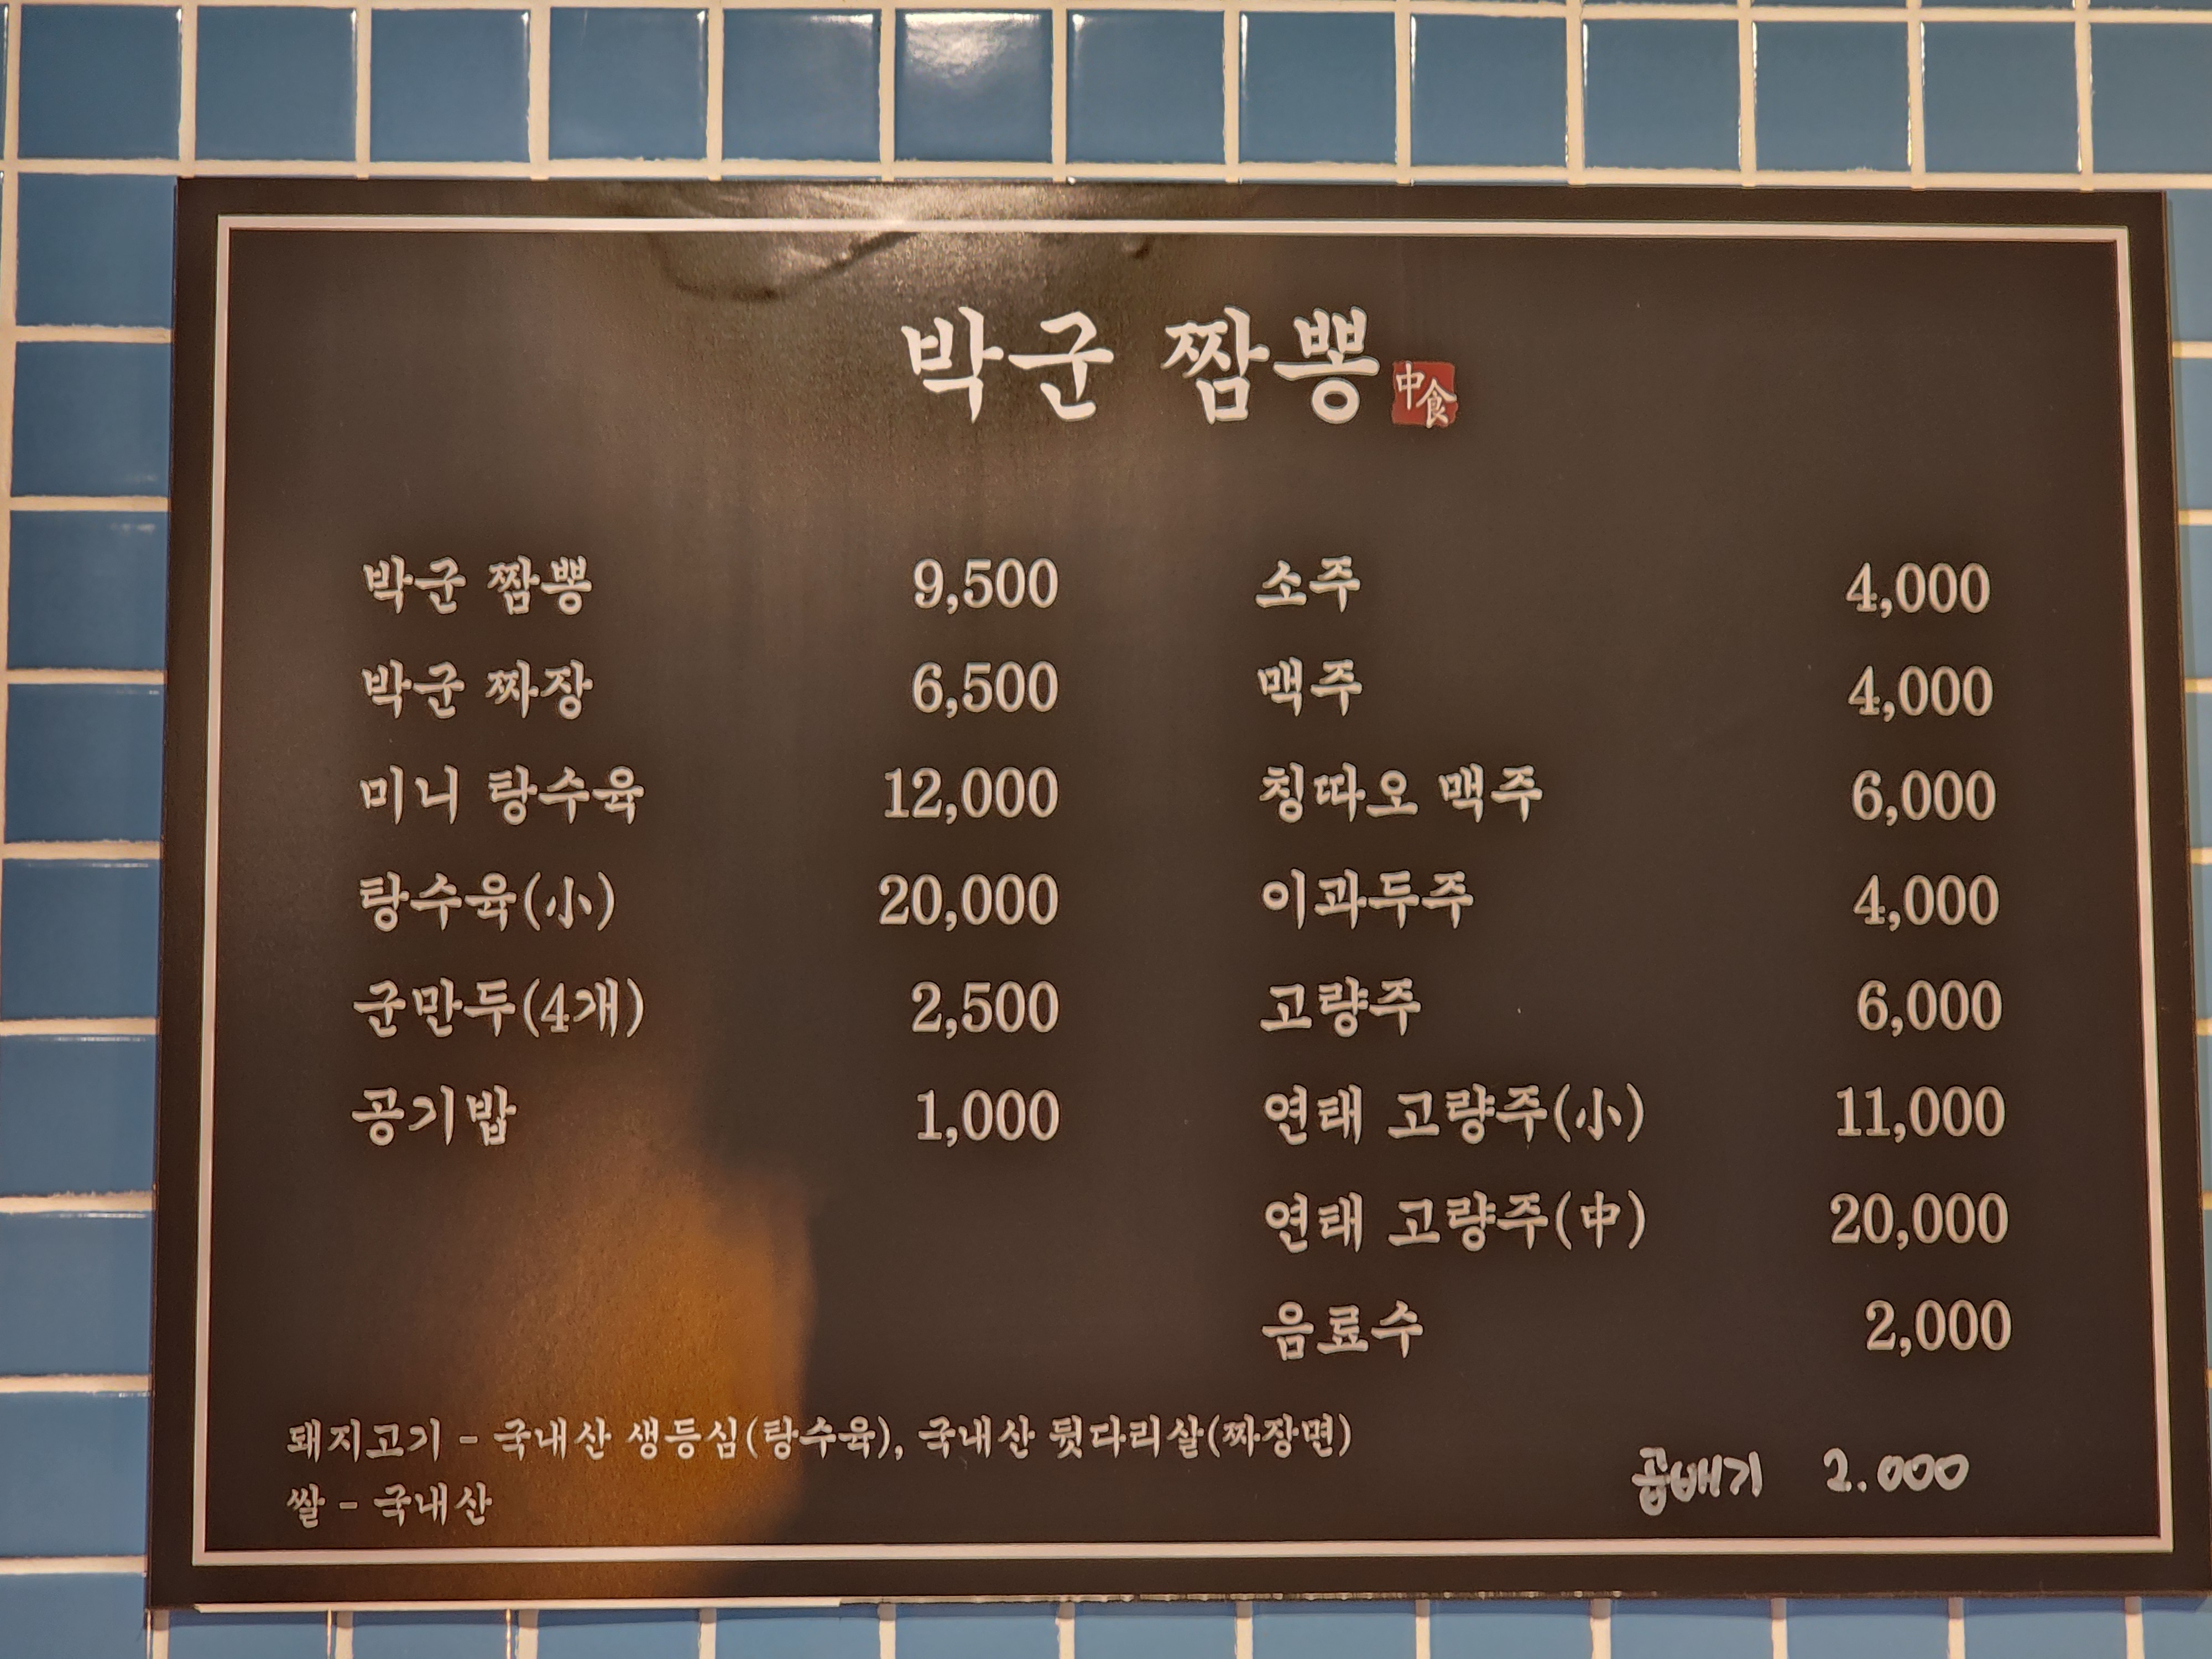 박군 짬뽕 中食
박군 짬뽕 9,500
박군 짜장 6,500
미니 탕수육 12,000
탕수육(小) 20,000
군만두(4개) 2,500
공기밥 1,000
소주 4,000
맥주 4,000
칭따오 맥주 6,000
이과두주 4,000
고량주 6,000
연태 고량주(小) 11,000
연태 고량주(中) 20,000
음료수 2,000
돼지고기 - 국내산 생등심(탕수육), 국내산 뒷다리살(짜장면)
쌀 - 국내산
곱배기 2.000